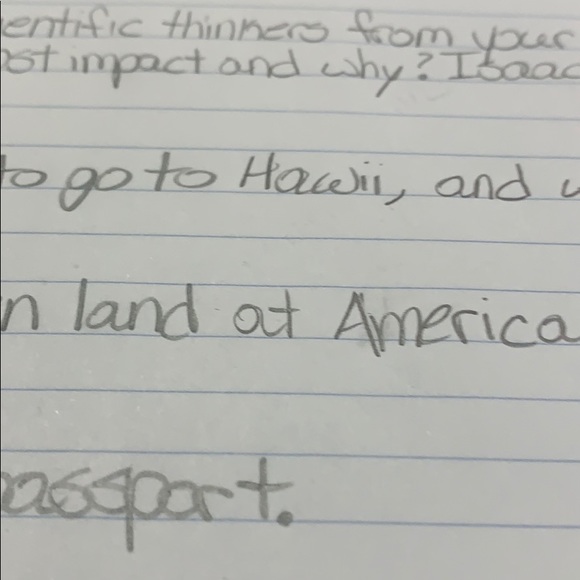 entific thinkers from your
ost impact and why? Isaac
to go to Hawii, and
n land at America
passport.